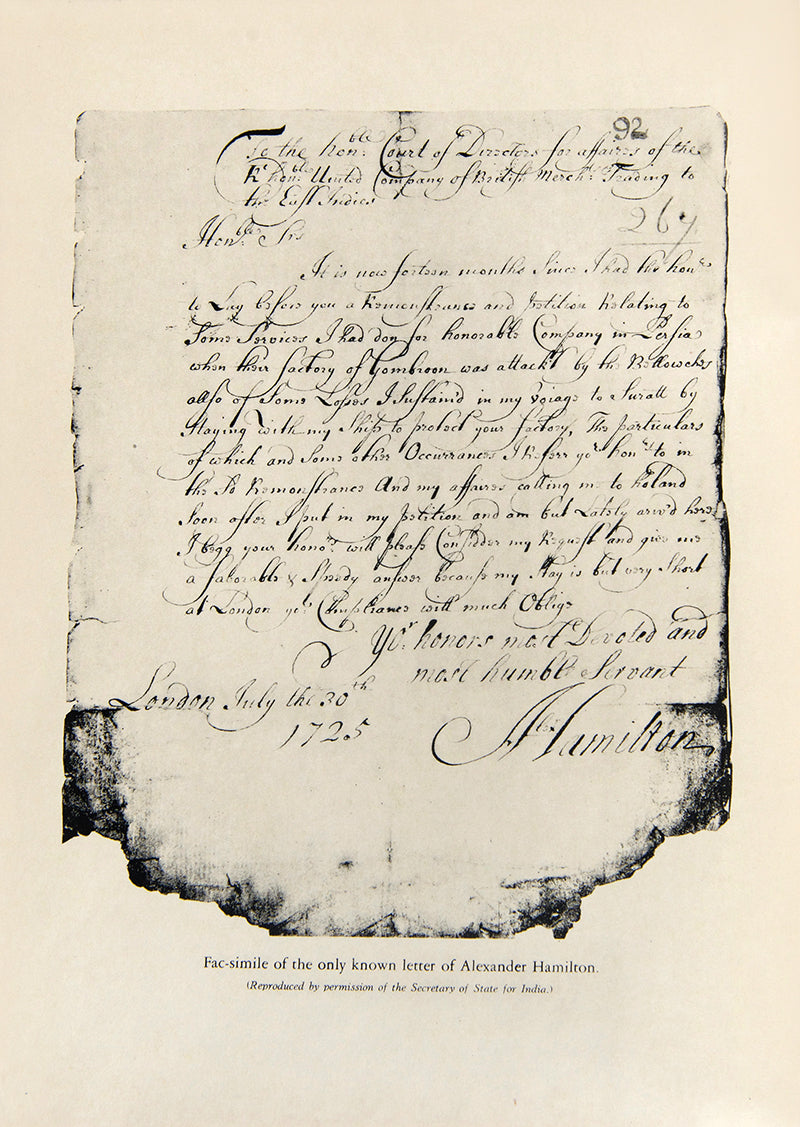 92
To the hon:ble Court of Directors for affaires of the
Rt hon:ble United Company of British Merch:ts Trading to
the East Indies
267
Hon:ble Srs
It is now forteen months Since I had the honr
to Lay before you a Remonstrance and petition Relating to
Some Services I had don for honorable Company in Persia
when their factory of Gombroon was attackt by the Bellowches
allso of Some Losses I Sustain'd in my Voiage to Suratt by
Staying with my Ship to protect your factory, The particulars
of which and Some other Occurrances I Referr yor honrs to in
the Sd Remonstrance And my affaires calling me to Holand
Soon after I put in my petition and am but Lately ariv'd here
I begg your honrs will please Consider my Request and give me
a faborable & Speedy answer because my Stay is but very Short
at London yor Compliance will much Oblige
Yor honors most Devoted and
most humble Servant
London July the 30th
1725
Alexr Hamilton
Fac-simile of the only known letter of Alexander Hamilton.
(Reproduced by permission of the Secretary of State for India.)